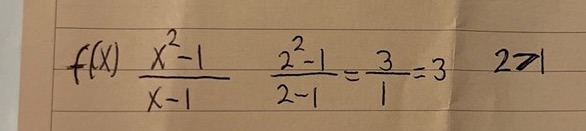 f(x) x²-1/x-1 2²-1/2-1 = 3/1 = 3 2>1